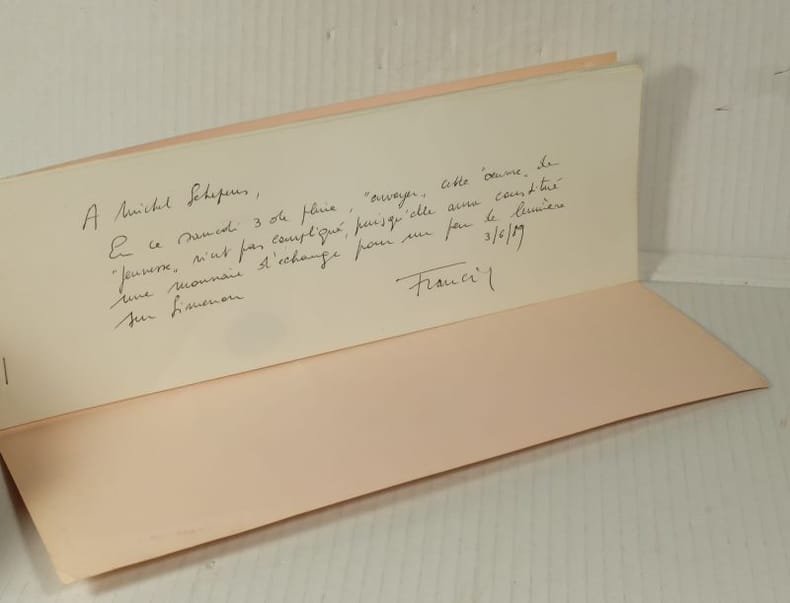 A Michel Schepens,
En ce samedi 3 de pluie, "envoyer" cette "œuvre" de
"jeunesse" n'est pas compliqué, puisqu'elle aura constitué
une monnaie d'échange pour un peu de lumière
sur Simenon
3/6/89
Francis